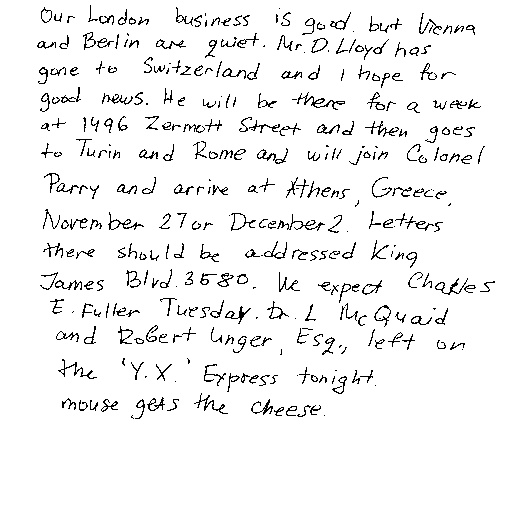 Our London business is good, but Vienna
and Berlin are quiet. Mr. D. Lloyd has
gone to Switzerland and I hope for
good news. He will be there for a week
at 1496 Zermott Street and then goes
to Turin and Rome and will join Colonel
Parry and arrive at Athens, Greece,
November 27 or December 2. Letters
there should be addressed King
James Blvd. 3580. We expect Charles
E. Fuller Tuesday. Dr. L McQuaid
and Robert Unger, Esq., left on
the 'Y.X.' Express tonight.
mouse gets the cheese.